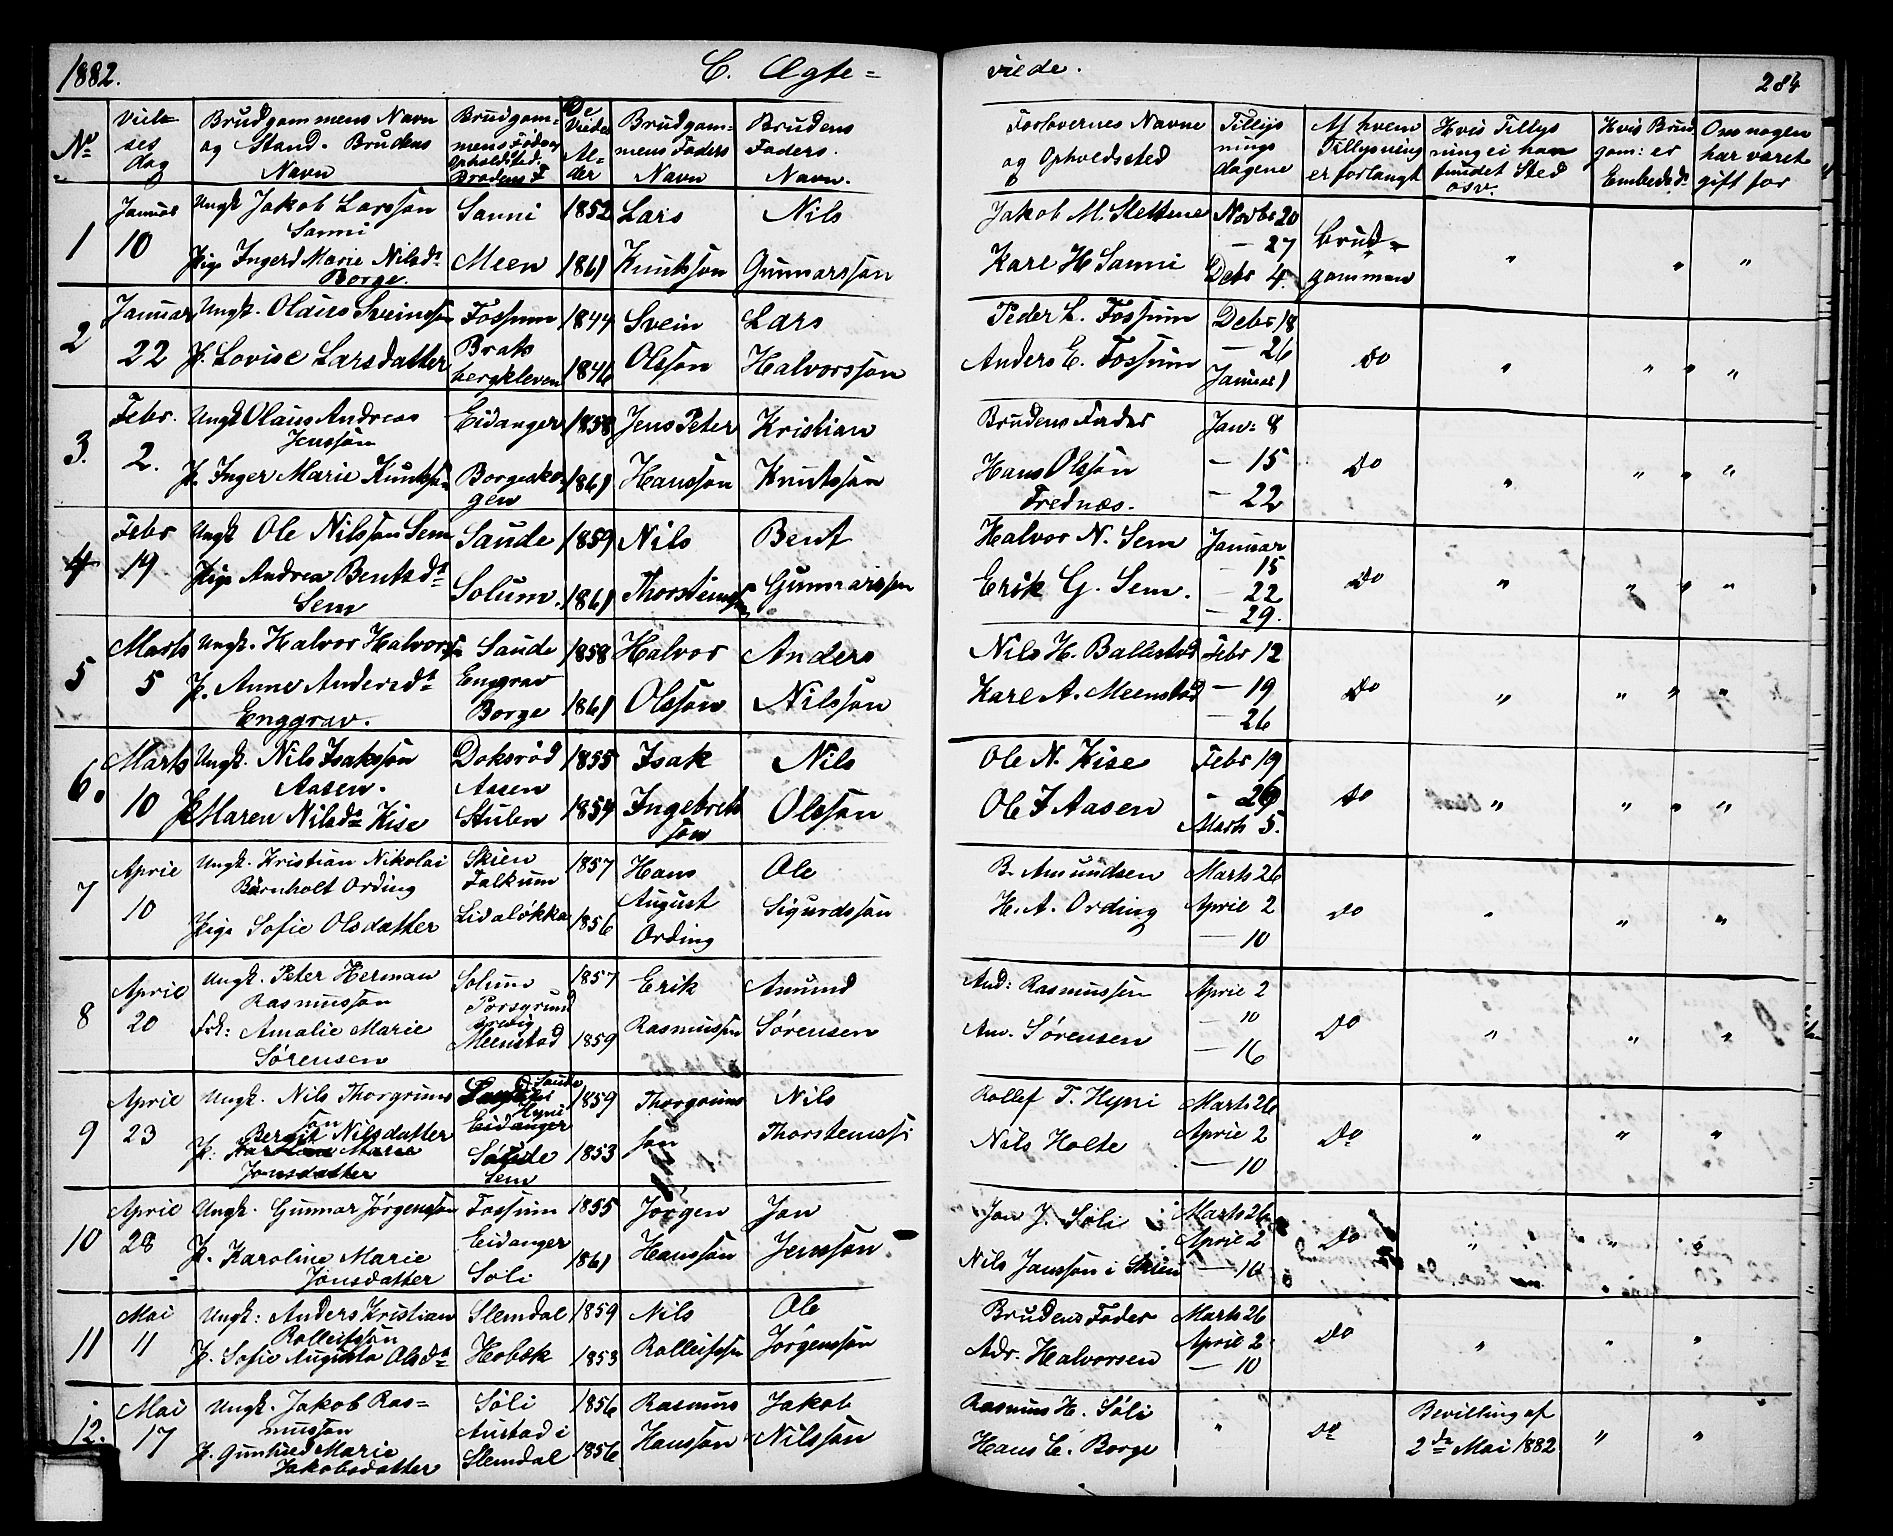 1882.
C. Ægte=
viede.
284
No
Viel=
ses
dag
Brudgommens Navn
og Stand. Brudens
Navn
Brudgom=
mens Føde og
Opholdsted.
Brudens F
De
Viedes
Al=
der
Brudgom=
mens Faders
Navn
Brudens
Faders
Navn.
Forlovernes Navne
og Opholdssted
Tillys
nings
dagene
Af hvem
Tillysning
er forlangt
Hvis Tillys
ning ei har
fundet Sted
osv.
Hvis Brud
gom: er
Embedsd.
Om nogen
har været
gift før
1
Januar
10
Ungk Jakob Larsson
Sanni
Pige Ingerd Marie Nilsdr
Borge.
Sanni
Meen
1852
1861
Lars
Knutsson
Nils
Gunnarsson
Jakob M. Stettene
Karl H Sanni
Novbr 20
— 27
Debr 4.
Brud=
gommen
" " "
2
Januar
22
Ungk. Olaus Sveinsson
P. Lovise Larsdatter
Fossum
Brats
bergkleven
1844
1846
Svein
Olsson
Lars
Halvorsson
Peder L. Fossum
Anders E. Fossum
Debr 18
— 26
Januar 1
Do
" " " "
3.
Febr.
2.
Ungk Olaus Andreas
Jensson
P. Inger Marie Knuts
Eidanger
Borgesko
gen
1858
1861
Jens Peter
Hansson
Kristian
Knutsson
Brudens Fader
Hans Olsson
Frednæs.
Jan: 8
— 15
— 22
Do
" " " "
4
Febr
19
Ungk Ole Nilsson Sem
Pige Andrea Bentsdr
Sem
Saude
Solum.
1859
1861
Nils
Thorsteinsson
Bent
Gunnarsson
Halvor N. Sem
Erik G. Sem.
Januar
15
— 22
— 29.
Do
" " " "
5
Marts
5
Ungk. Halvor Halvors
P. Anne Andersdr
Enggrav.
Saude
Enggrav
Borge
1858
1861
Halvor
Olsson
Anders
Nilsson
Nils H. Ballestad
Karl A. Meenstad
Febr 12
— 19
— 26
Do
" " " "
6.
Marts
10
Ungk. Nils Isaksson
Aasen.
P Maren Nilsdr Kise
Doksrød
Aasen
Stulen
1855
1854
Isak
Ingebrets
son
Nils
Olsson
Ole N. Kise
Ole I Aasen
Febr 19
- 26
Marts 5.
Do
" " " "
7
April
10
Ungk. Kristian Nikolai
Børnholt Ording
Pige Sofie Olsdatter
Skien
Falkum
Lidaløkka
1857
1856
Hans
August
Ording
Ole
Sigurdsson
B. Amundsen
H. A. Ording
Marts 26
April 2
— 10
Do
" " "
8
April
20
Ungk. Peter Herman
Rasmusson
Frk: Amalie Marie
Sørensen
Solum
Porsgrund
Meenstad
1857
1859
Erik
Rasmusson
Amund
Sørensen
And: Rasmussen
Am. Sørensen
April 2
— 10
— 16
Do
" " "
9
April
23
Ungk. Nils Thorgrims
son
Bergit Nilsdatter
P. Karoline Marie
Jonsdatter
Saude
Hyni
Eidanger
Saude
Sem
1859
1853
Thorgrims
son
Nils
Thorsteinss
Rollef T. Hyni
Nils Holte
Marts 26
April 2
— 10
Do
" " "
10
April
28
Ungk. Gunnar Jørgensson
P. Karoline Marie
Jonsdatter
Fossum
Eidanger
Søli
1855
1861
Jørgen
Hansson
Jon
Jensson.
Jon J. Søli
Nils Jansson i Skien
Marts 26
April 2
— 16
Do
" " "
11
Mai
11
Ungk: Anders Kristian
Rolleifsson
P. Sofie Augusta Olsdr
Slemdal
Hobæk
1859
1853
Nils
Rolleifsson
Ole
Jørgensson
Brudens Fader
Adr. Halvorsen
Marts 26
April 2
— 10
Do
" " "
12.
Mai
17
Ungk. Jakob Ras=
musson
P. Gunhild Marie
Jakobsdatter
Søli
Austad i
Slemdal
1856
1856
Rasmus
Hansson
Jakob
Nilsson
Rasmus H. Søli
Hans C. Borge
"
Do
Bevilling af
2de Mai 1882
" "